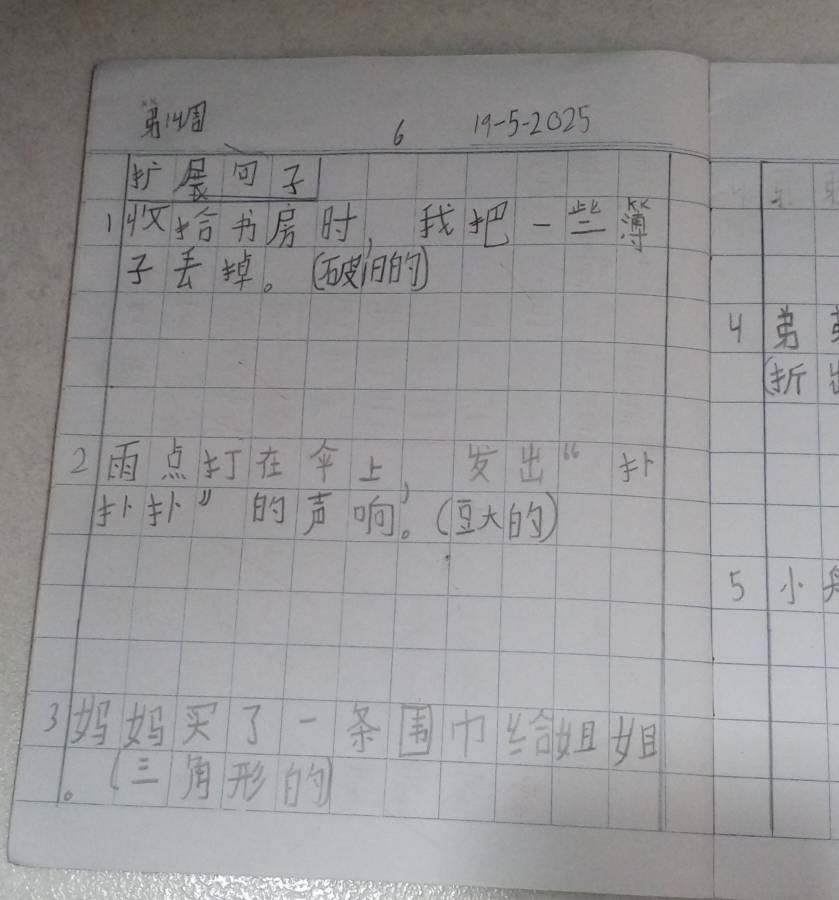 第14周 6 19-5-2025
扩展句子
1 收拾书房时，我把一些簿
子丢掉。(破旧的)
2 雨点打在伞上，发出“扑
扑扑”的声响。(豆大的)
3 妈妈买了一条围巾给姐姐
。(三角形的)
4 弟
(折出
5 小